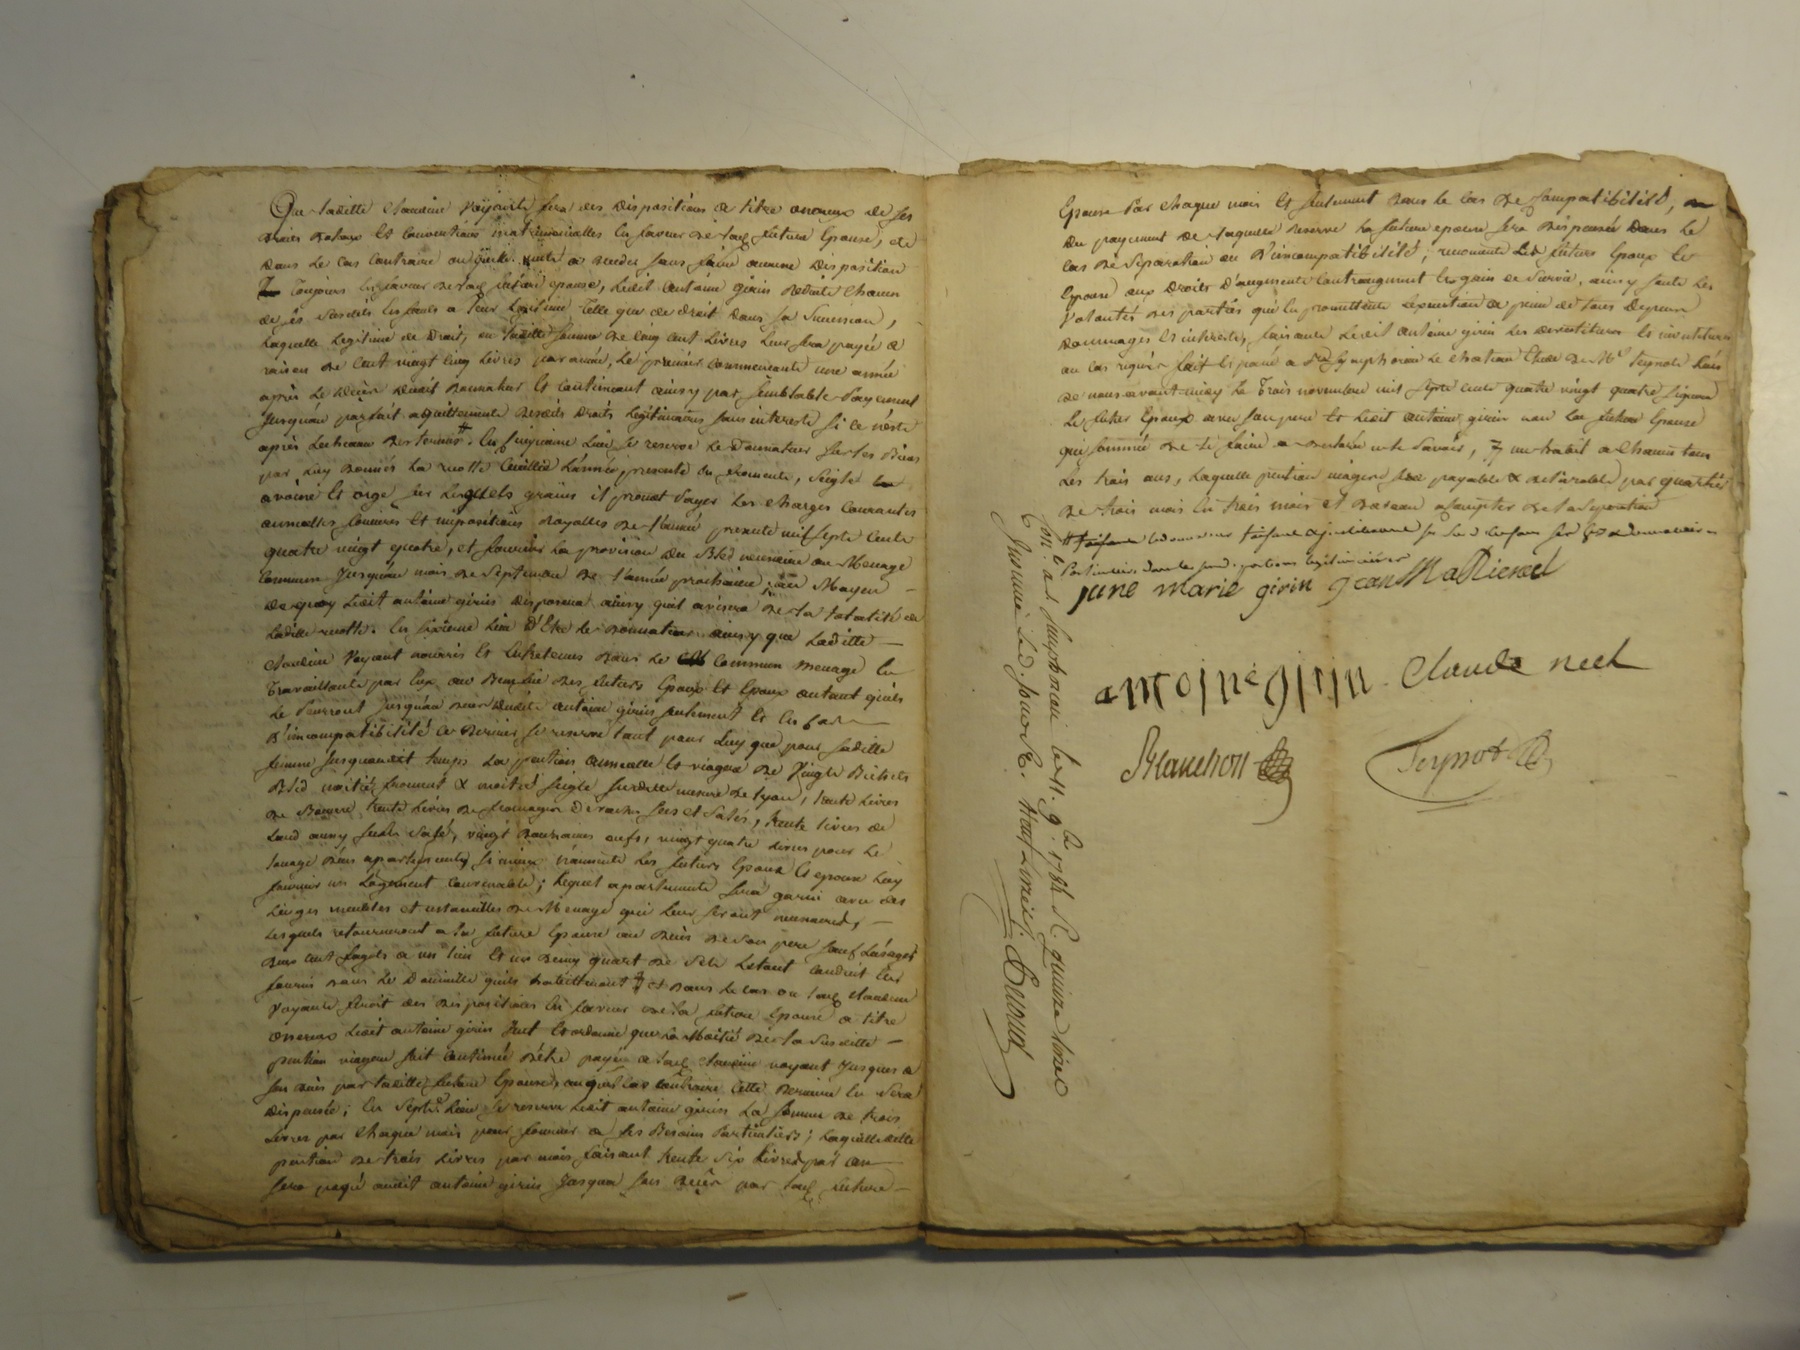 Que laditte Claudine Voyant fera des dispositions a titre onereux de ses
droits dotaux et conventions matrimonialles en faveur de lad future Epouse, et
dans le cas contraire ou elle viendroit a deceder sans faire aucune disposition
Toujours en faveur de lad future epouse, Ledit antoine girin reduit chacun
de ses enfants a leur Legitime telle que de droit dans sa succession,
Laquelle legitime de droit, ou laditte somme de cinq cent livres leur sera payée a
raison de cent vingt cinq livres par année, Le premier commencant une année
après le décès dudit donnateur Et continuant ainsy par semblable payement
jusquau parfait aquittement desdits droits legitimaires sans interests si ce n'est
après l'echeance des termes #. En cinquieme Lieu se reserve Le Donnateur sur les Biens
par luy donnés la recolte cueillie l'année presente en froment, seigle
avoine Et orge sur lesquels grains il promet payer les charges courantes
annuelles foncieres Et impositions Royalles de l'année presente mil sept cent
quatre vingt quatre, et fournir la provision du Bled necessaire au Menage
commun jusquau mois de septembre de l'année prochaine; au Moyen
de quoy Ledit antoine girin disposera ainsy quil avisera de la totalité de
laditte recolte. En sixieme Lieu d'Etre le donnateur ainsy que laditte
Claudine Voyant nourris Et Entretenus dans le commun menage En
Travaillants par Eux au Benefice des futurs Epoux Et Epouse autant quils
le pourront jusquau décès dudit antoine girin seulement Et En cas
d'incompatibilité ce dernier se reserve tant pour Luy que pour saditte
femme jusquaudit temps la pention annuelle Et viagere de vingt Bichets
Bled moitié froment & moitié seigle susditte mesure de lyon, trente livres
de Beurre, trente livres de fromages de vaches secs et salés, trente livres de
Lard aussy salé, vingt douzaines œufs, vingt quatre livres pour le
louage d'un apartement, si mieux n'aiment les futurs Epoux Et epouse luy
fournir un logement convenable; lequel apartement sera garni avec des
linges meubles et ustancilles de Menage qui leur seront necessaires,
lesquels retourneront a la future Epouse au décès de son pere sauf l'usage
deux cent fagots a un lien Et un demy quart de sel le tout conduit Et
fourni dans le Domicille quils habitteront # Et dans le cas ou lad Claudine
Voyant feroit des dispositions En faveur de la future Epouse a titre
onereux Ledit antoine girin veut Et ordonne que la Moitié de la susditte
pention viagere soit continuée d'être payée a lad Claudine voyant jusques a
son décès par laditte future Epouse, auquel cas contraire cette derniere En sera
dispensée; En septe Lieu se reserve Ledit antoine girin la somme de trois
livres par chaque mois pour fournir a ses Besoins particuliers; laquelle ditte
pention de trois livres par mois faisant trente six livres par an
sera payé audit antoine girin jusqua son décès par lad future
Epouse Par chaque mois Et seulement dans le cas de compatibilité,
du payement de laquelle reserve la future epouse sera dispensée dans le
cas de separation ou d'incompatibilité; renoncants Les futurs Epoux Et
Epouse aux droits d'augment contraugment Et gain de survie, ainsy sont les
volontés des parties qui En promettent l'execution a peine de tous Depens
dommages Et interets, faisants Ledit antoine girin les devestitures Et investitures
au cas requis fait Et passé a St Symphorien le chateau Etude de Me Teynot l'un
de nous avant midy le Trois novembre mil sept cent quatre vingt quatre signera
Le futur Epoux avec son pere Et Ledit antoine girin non la future Epouse
qui sommée de le faire a declaré ne le savoir, 7 un habit a chacun tous
les trois ans, laquelle pention viagere sera payable & delivrable par quartier
de trois mois En trois mois et d'avance a compter de la separation
jane marie girin jean Mattieu
antoine girin Claude neel
Blanchon
Teynot
Conlé a St Simphorien le 11. 9bre 1784 R. quinze livres